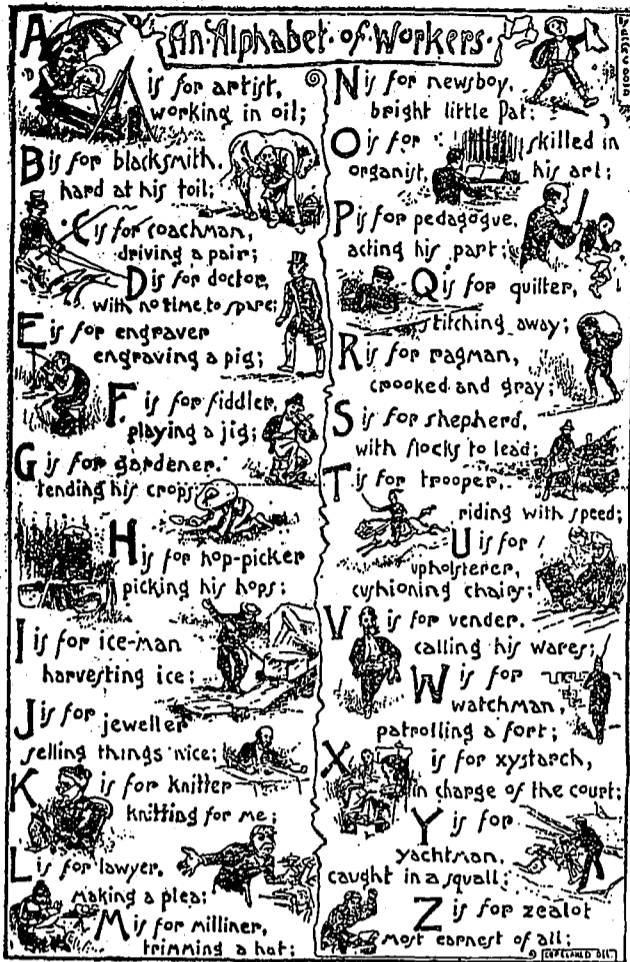 An Alphabet of Workers.
A is for artist,
working in oil;
B is for blacksmith,
hard at his toil;
C is for coachman,
driving a pair;
D is for doctor,
with no time to spare;
E is for engraver
engraving a pig;
F is for fiddler,
playing a jig;
G is for gardener,
tending his crops;
H is for hop-picker
picking his hops;
I is for ice-man
harvesting ice;
J is for jeweller
selling things nice;
K is for knitter
knitting for me;
L is for lawyer,
making a plea;
M is for milliner,
trimming a hat;
N is for newsboy,
bright little Pat;
O is for organist, skilled in
his art;
P is for pedagogue,
acting his part;
Q is for quilter,
stitching away;
R is for ragman,
crooked and gray;
S is for shepherd,
with flocks to lead;
T is for trooper,
riding with speed;
U is for
upholsterer,
cushioning chairs;
V is for vender,
calling his wares;
W is for
watchman,
patrolling a fort;
X is for xystarch,
in charge of the court;
Y is for
yachtman,
caught in a squall;
Z is for zealot
most earnest of all;
COPELAND DEL.